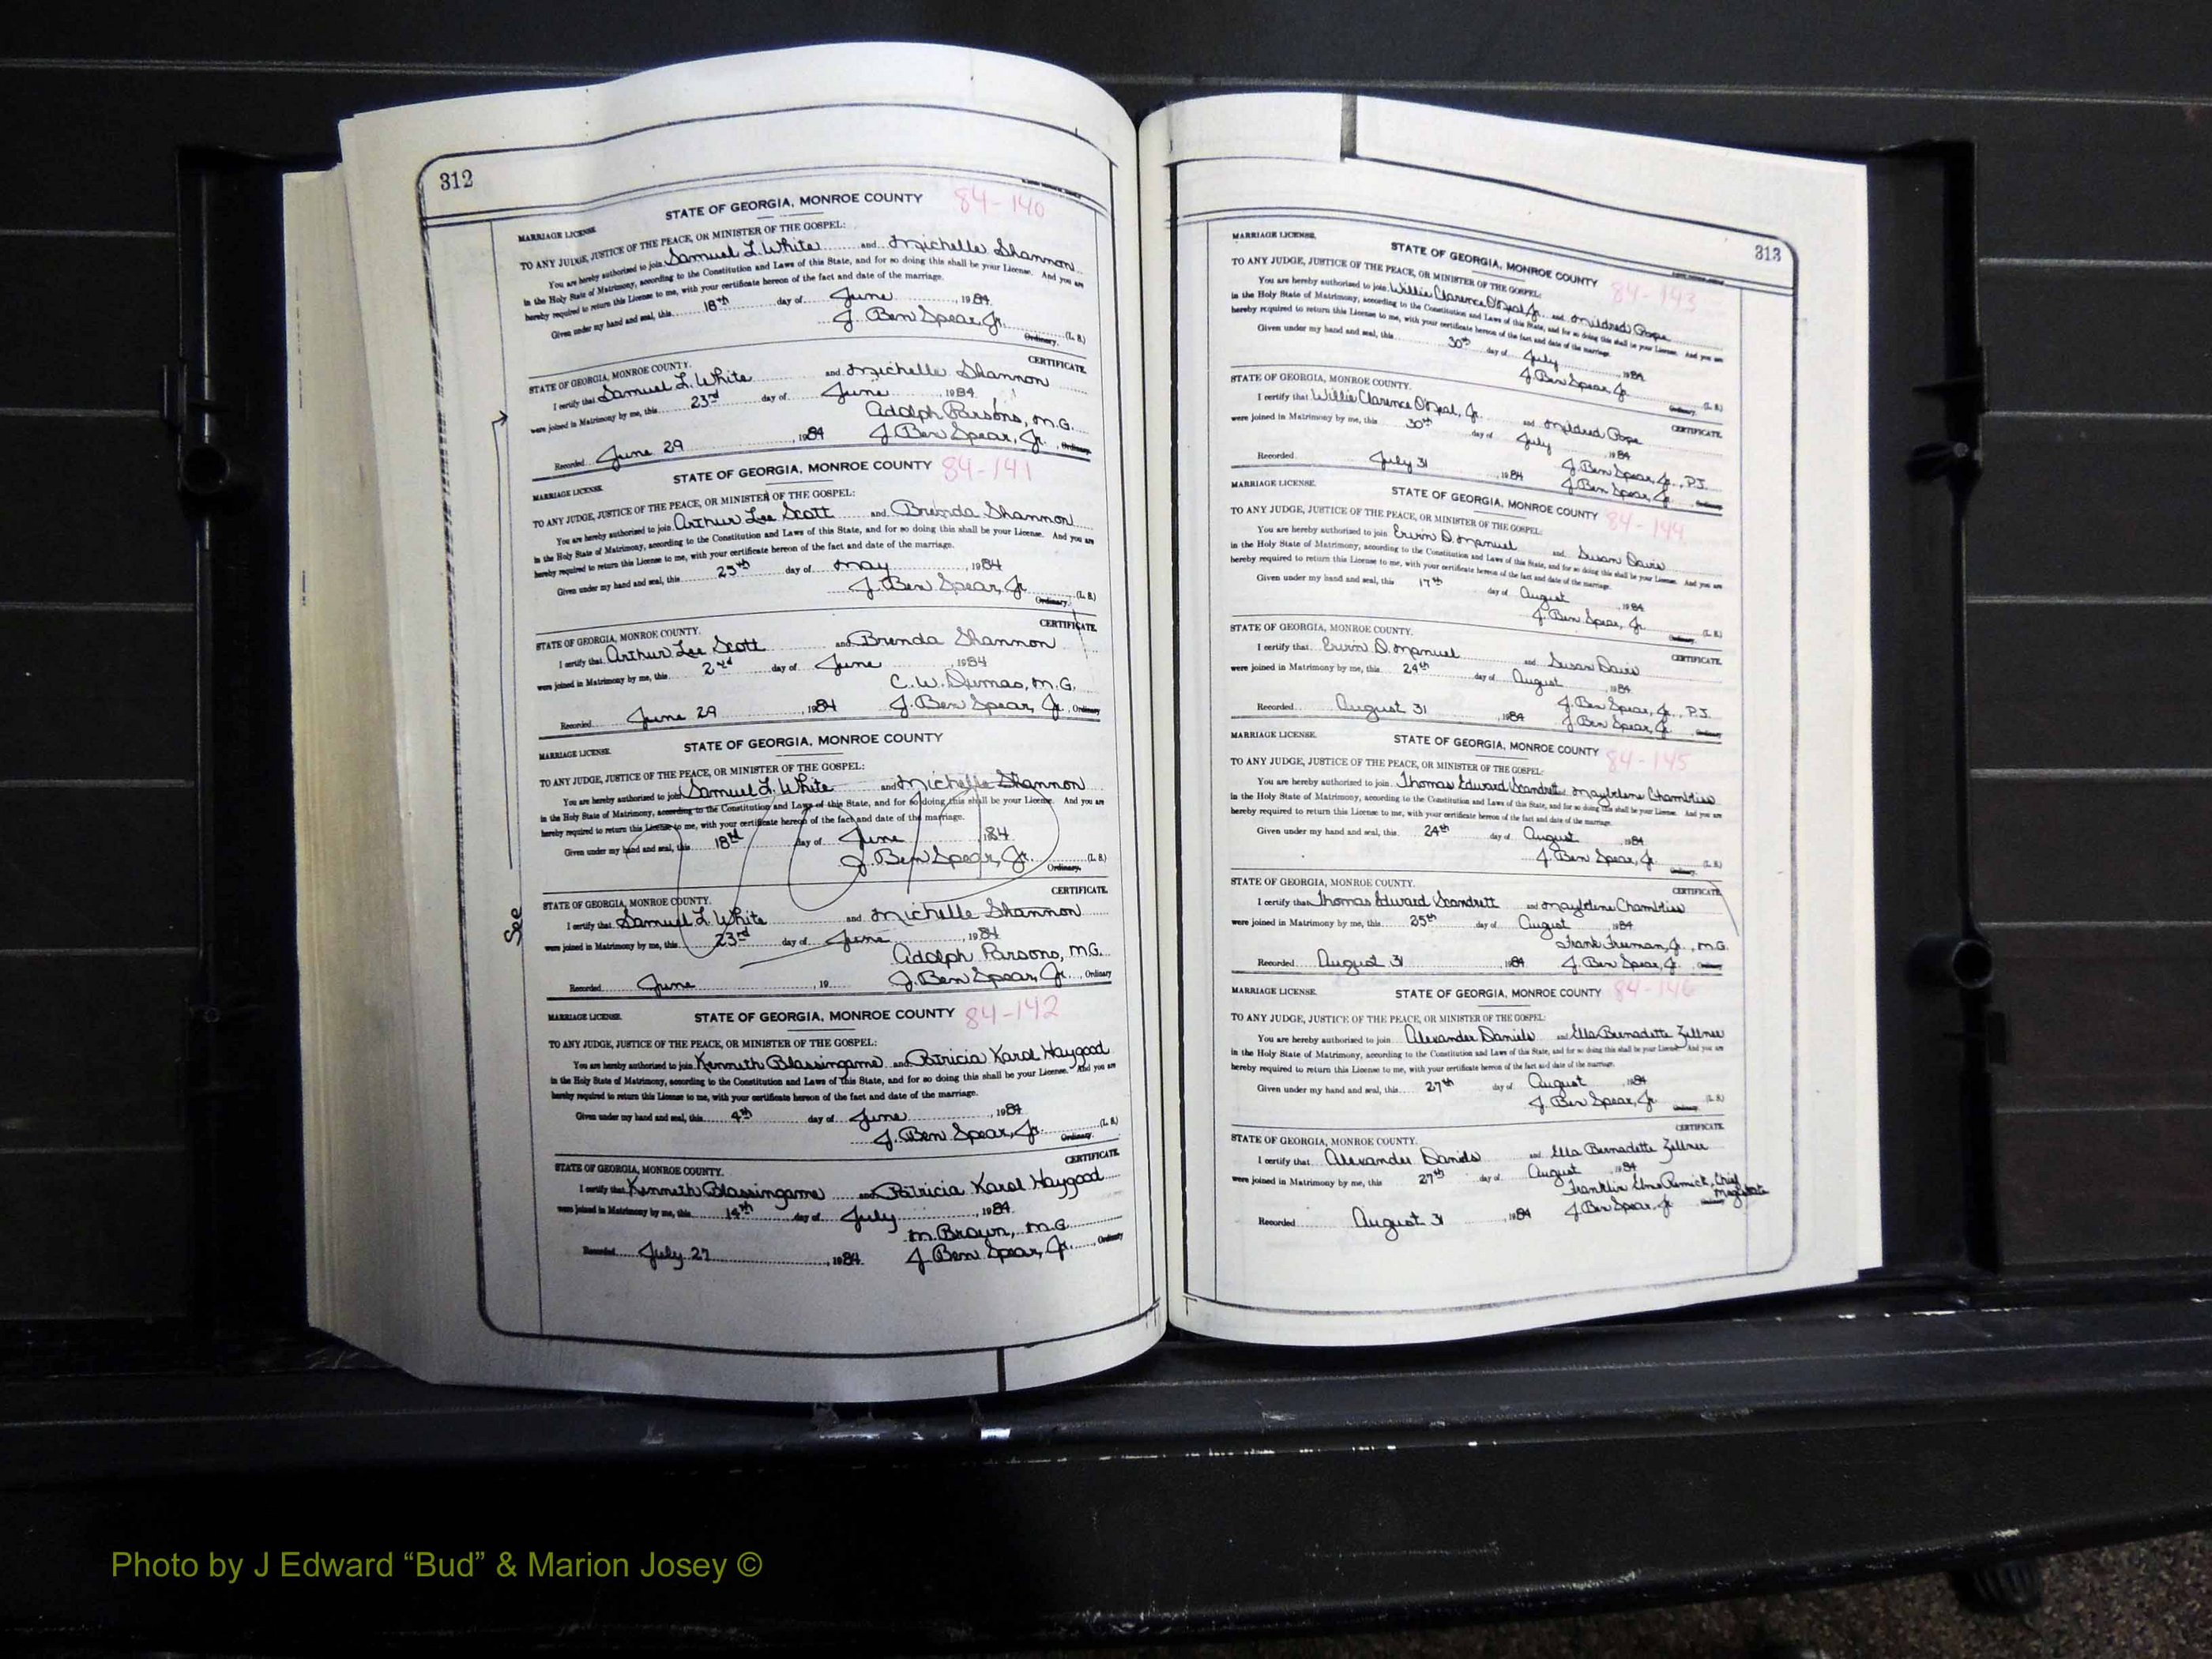 312
STATE OF GEORGIA, MONROE COUNTY 84-140
MARRIAGE LICENSE.
TO ANY JUDGE, JUSTICE OF THE PEACE, OR MINISTER OF THE GOSPEL:
You are hereby authorized to join Samuel L. White and Michelle Shannon
in the Holy State of Matrimony, according to the Constitution and Laws of this State, and for so doing this shall be your License. And you are
hereby required to return this License to me, with your certificate hereon of the fact and date of the marriage.
Given under my hand and seal, this 18th day of June, 1984
J. Ben Spear, Jr. (L. S.)
Ordinary.
CERTIFICATE.
STATE OF GEORGIA, MONROE COUNTY.
I certify that Samuel L. White and Michelle Shannon
were joined in Matrimony by me, this 23rd day of June, 1984.
Adolph Parsons, M.G.
Recorded June 29, 1984 J. Ben Spear, Jr., Ordinary
STATE OF GEORGIA, MONROE COUNTY 84-141
MARRIAGE LICENSE.
TO ANY JUDGE, JUSTICE OF THE PEACE, OR MINISTER OF THE GOSPEL:
You are hereby authorized to join Arthur Lee Scott and Brenda Shannon
in the Holy State of Matrimony, according to the Constitution and Laws of this State, and for so doing this shall be your License. And you are
hereby required to return this License to me, with your certificate hereon of the fact and date of the marriage.
Given under my hand and seal, this 25th day of May, 1984
J. Ben Spear, Jr. (L. S.)
Ordinary.
CERTIFICATE.
STATE OF GEORGIA, MONROE COUNTY.
I certify that Arthur Lee Scott and Brenda Shannon
were joined in Matrimony by me, this 2nd day of June, 1984
C. W. Dumas, M.G.
Recorded June 29, 1984 J. Ben Spear, Jr., Ordinary
MARRIAGE LICENSE. STATE OF GEORGIA, MONROE COUNTY
TO ANY JUDGE, JUSTICE OF THE PEACE, OR MINISTER OF THE GOSPEL:
You are hereby authorized to join Samuel L. White and Michelle Shannon
in the Holy State of Matrimony, according to the Constitution and Laws of this State, and for so doing this shall be your License. And you are
hereby required to return this License to me, with your certificate hereon of the fact and date of the marriage.
Given under my hand and seal, this 18th day of June, 1984
J. Ben Spear, Jr. (L. S.)
Ordinary.
Void
See
CERTIFICATE.
STATE OF GEORGIA, MONROE COUNTY.
I certify that Samuel L. White and Michelle Shannon
were joined in Matrimony by me, this 23rd day of June, 1984
Adolph Parsons, M.G.
Recorded June, 19 J. Ben Spear, Jr., Ordinary
MARRIAGE LICENSE. STATE OF GEORGIA, MONROE COUNTY 84-142
TO ANY JUDGE, JUSTICE OF THE PEACE, OR MINISTER OF THE GOSPEL:
You are hereby authorized to join Kenneth Blassingame and Patricia Karol Haygood
in the Holy State of Matrimony, according to the Constitution and Laws of this State, and for so doing this shall be your License. And you are
hereby required to return this License to me, with your certificate hereon of the fact and date of the marriage.
Given under my hand and seal, this 4th day of June, 1984
J. Ben Spear, Jr. (L. S.)
Ordinary.
CERTIFICATE.
STATE OF GEORGIA, MONROE COUNTY.
I certify that Kenneth Blassingame and Patricia Karol Haygood
were joined in Matrimony by me, this 14th day of July, 1984.
M. Brown, M.G.
Recorded July 27, 1984. J. Ben Spear, Jr., Ordinary
313
MARRIAGE LICENSE. STATE OF GEORGIA, MONROE COUNTY 84-143
TO ANY JUDGE, JUSTICE OF THE PEACE, OR MINISTER OF THE GOSPEL:
You are hereby authorized to join Willie Clarence O'Neal, Jr. and Mildred Pope
in the Holy State of Matrimony, according to the Constitution and Laws of this State, and for so doing this shall be your License. And you are
hereby required to return this License to me, with your certificate hereon of the fact and date of the marriage.
Given under my hand and seal, this 30th day of July, 1984
J. Ben Spear, Jr. (L. S.)
Ordinary.
STATE OF GEORGIA, MONROE COUNTY. CERTIFICATE.
I certify that Willie Clarence O'Neal, Jr. and Mildred Pope
were joined in Matrimony by me, this 30th day of July, 1984
J. Ben Spear, Jr., P.J.
Recorded July 31, 1984 J. Ben Spear, Jr. Ordinary
MARRIAGE LICENSE. STATE OF GEORGIA, MONROE COUNTY 84-144
TO ANY JUDGE, JUSTICE OF THE PEACE, OR MINISTER OF THE GOSPEL:
You are hereby authorized to join Ervin D. Manuel and Susan Davis
in the Holy State of Matrimony, according to the Constitution and Laws of this State, and for so doing this shall be your License. And you are
hereby required to return this License to me, with your certificate hereon of the fact and date of the marriage.
Given under my hand and seal, this 17th day of August, 1984
J. Ben Spear, Jr. (L. S.)
Ordinary.
STATE OF GEORGIA, MONROE COUNTY. CERTIFICATE.
I certify that Ervin D. Manuel and Susan Davis
were joined in Matrimony by me, this 24th day of August, 1984
J. Ben Spear, Jr., P.J.
Recorded August 31, 1984 J. Ben Spear, Jr. Ordinary
MARRIAGE LICENSE. STATE OF GEORGIA, MONROE COUNTY 84-145
TO ANY JUDGE, JUSTICE OF THE PEACE, OR MINISTER OF THE GOSPEL:
You are hereby authorized to join Thomas Edward Scandrett Maybelene Chambliss
in the Holy State of Matrimony, according to the Constitution and Laws of this State, and for so doing this shall be your License. And you are
hereby required to return this License to me, with your certificate hereon of the fact and date of the marriage.
Given under my hand and seal, this 24th day of August, 1984
J. Ben Spear, Jr. (L. S.)
Ordinary.
STATE OF GEORGIA, MONROE COUNTY. CERTIFICATE.
I certify that Thomas Edward Scandrett and Maybelene Chambliss
were joined in Matrimony by me, this 25th day of August, 1984
Frank Freeman, Jr., M.G.
Recorded August 31, 1984 J. Ben Spear, Jr. Ordinary
MARRIAGE LICENSE. STATE OF GEORGIA, MONROE COUNTY 84-146
TO ANY JUDGE, JUSTICE OF THE PEACE, OR MINISTER OF THE GOSPEL:
You are hereby authorized to join Alexander Daniels and Ella Bernadette Zellner
in the Holy State of Matrimony, according to the Constitution and Laws of this State, and for so doing this shall be your License. And you are
hereby required to return this License to me, with your certificate hereon of the fact and date of the marriage.
Given under my hand and seal, this 27th day of August, 1984
J. Ben Spear, Jr. (L. S.)
Ordinary.
CERTIFICATE.
STATE OF GEORGIA, MONROE COUNTY.
I certify that Alexander Daniels and Ella Bernadette Zellner
were joined in Matrimony by me, this 27th day of August, 1984
Franklin Chief
Magistrate
Recorded August 31, 1984 J. Ben Spear, Jr. Ordinary
Photo by J Edward “Bud” & Marion Josey ©